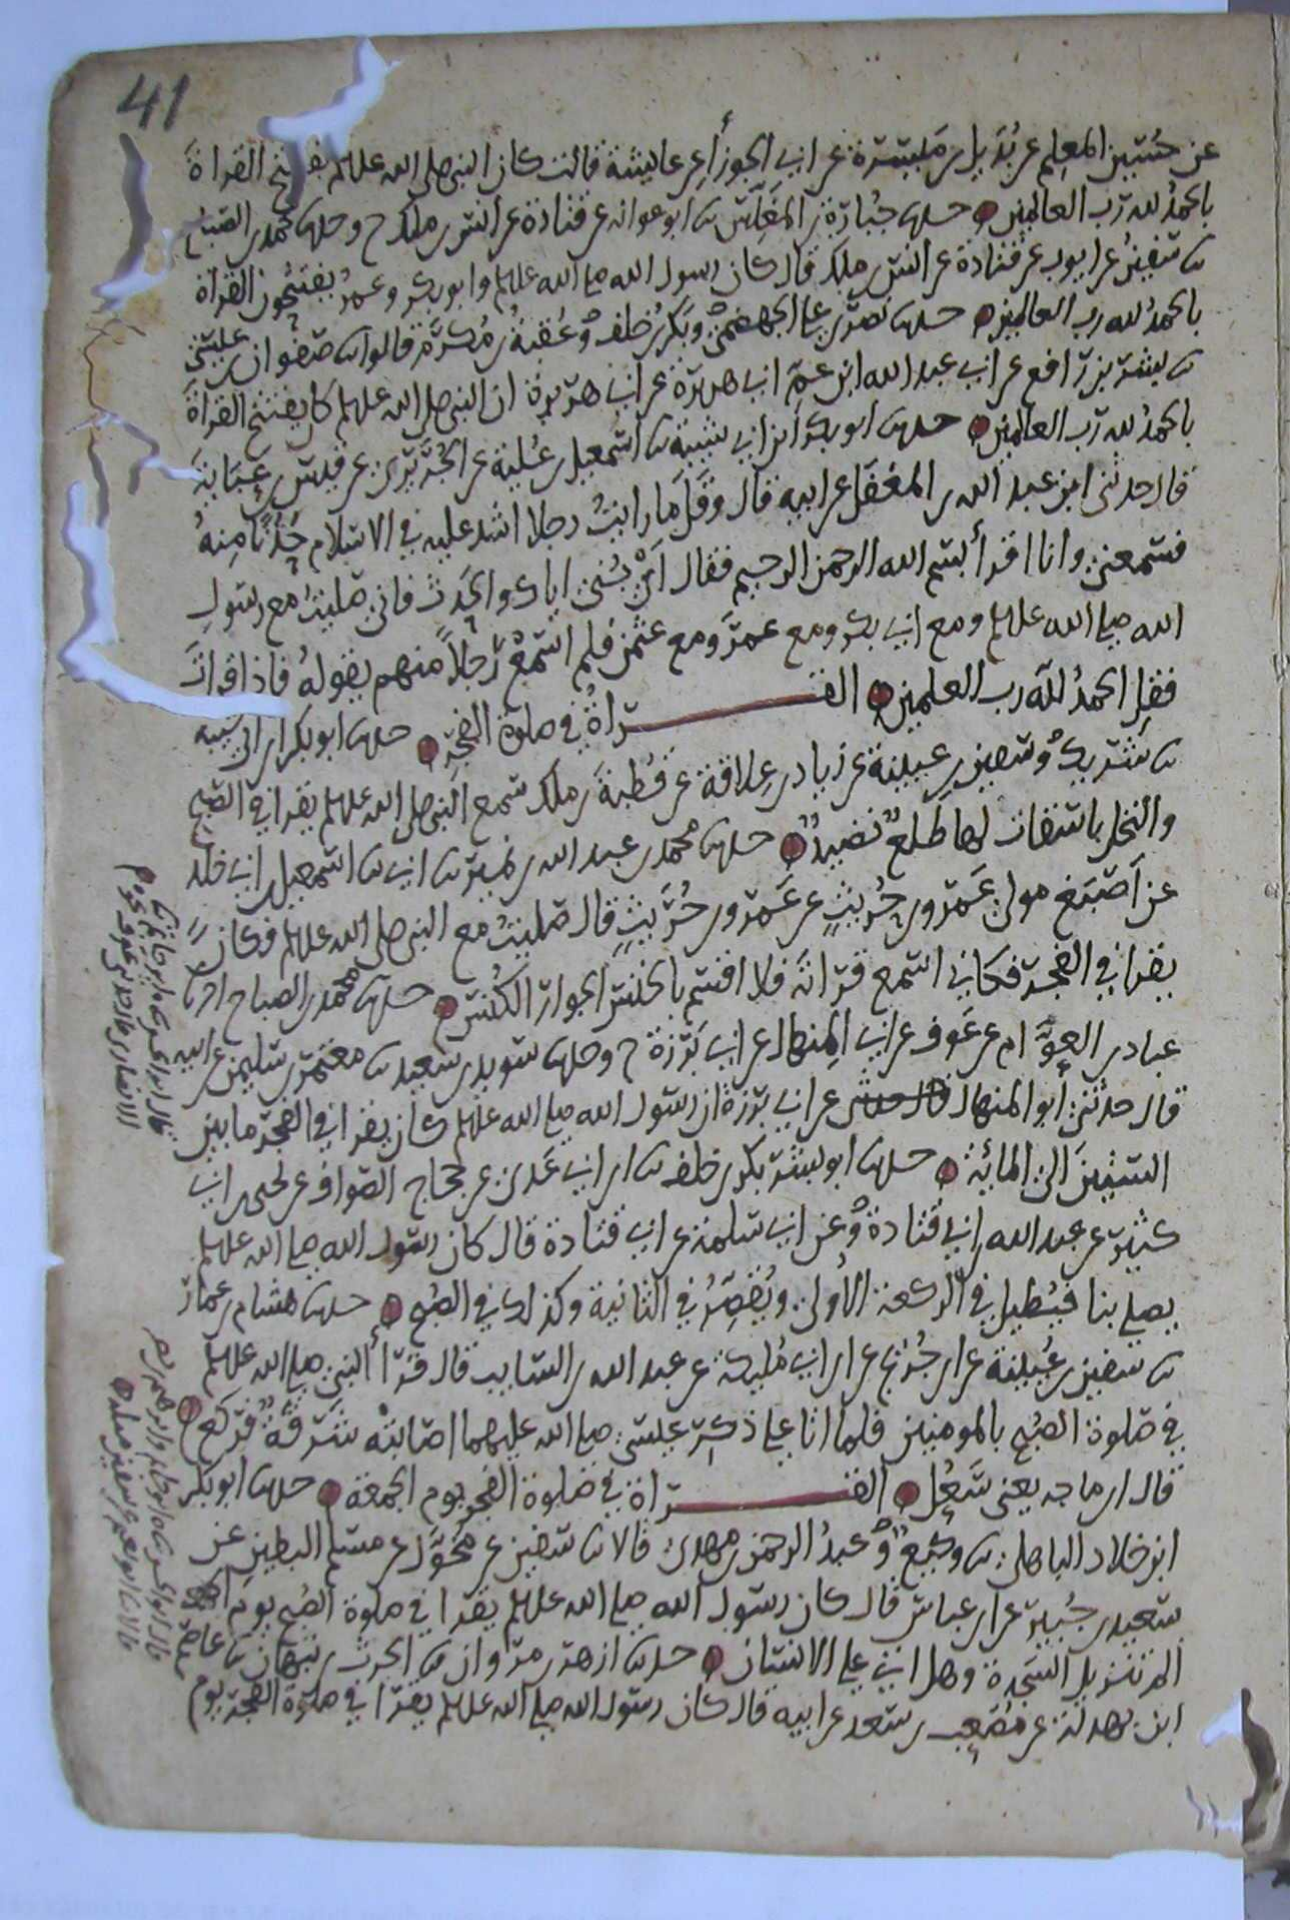 41
عن حسين المعلم عن بديل بن ميسرة عن ابي الجوزاء عن عايشة قالت كان النبي صلى الله عليه وسلم يفتتح القراة
بالحمد لله رب العالمين حدثنا جبارة بن المغلس ثنا ابو عوانه عن قتادة عن انس بن ملك ح وحدثنا محمد بن الصباح
ثنا سفين عن ايوب عن قتادة عن انس بن ملك قال كان رسول الله صلى الله عليه وسلم وابو بكر وعمر يفتتحون القراة
بالحمد لله رب العالمين حدثنا نصر بن علي الجهضمي وبكر بن خلف وعقبة بن مكرم قالوا ثنا صفوان بن عيسى
ثنا بشر بن رافع عن ابي عبد الله ابن عم ابي هريرة عن ابي هريرة ان النبي صلى الله عليه وسلم كان يفتتح القراة
بالحمد لله رب العالمين حدثنا ابو بكر ابن ابي شيبة ثنا اسمعيل بن علية عن الجريري عن قيس بن عباية
قال حدثني ابن عبد الله بن المغفل عن ابيه قال وقل ما رايت رجلا اشد عليه في الاسلام حدثا منه
فسمعني وانا اقرأ بسم الله الرحمن الرحيم فقال اي بني اياك والحدث فاني صليت مع رسول
الله صلى الله عليه وسلم ومع ابي بكر ومع عمر ومع عثمن فلم اسمع رجلا منهم يقوله فاذا قرات
فقل الحمد لله رب العلمين القراة في صلوة الفجر حدثنا ابو بكر ابن ابي شيبه
ثنا شريك وسفين بن عيينة عن زياد بن علاقة عن قطبة بن ملك سمع النبي صلى الله عليه وسلم يقرا في الصبح
والنخل باسقات لها طلع نضيد حدثنا محمد بن عبد الله بن نمير ثنا ابي ثنا اسمعيل بن ابي خلد
عن اصبغ مولى عمرو بن حريث عن عمرو بن حريث قال صليت مع النبي صلى الله عليه وسلم فكان
يقرا في الفجر فكاني اسمع قراته فلا اقسم بالخنس الجوار الكنس حدثنا محمد بن الصباح انا
عباد بن العوام عن عوف عن ابي المنهال عن ابي برزة ح وحدثنا سويد بن سعيد ثنا معتمر بن سليمن عن ابيه
قال حدثني ابو المنهال عن ابي برزة ان رسول الله صلى الله عليه وسلم كان يقرا في الفجر ما بين
الستين الى المائة حدثنا ابو بشر بكر بن خلف ثنا ابن ابي عدي عن حجاج الصواف عن يحيى بن ابي
كثير عن عبد الله بن ابي قتادة وعن ابي سلمة عن ابي قتادة قال كان رسول الله صلى الله عليه وسلم
يصلي بنا فيطيل في الركعة الاولى ويقصر في الثانية وكذلك في الصبح حدثنا هشام بن عمار
ثنا سفين بن عيينة عن ابن جريج عن ابن ابي مليكة عن عبد الله بن السايب قال قرأ النبي صلى الله عليه وسلم
في صلوة الصبح بالمومنين فلما اتا على ذكر عيسى صلى الله عليهما اصابته شرقة فركع
قال ابن ماجه يعني سعل القراة في صلوة الفجر يوم الجمعة حدثنا ابو بكر
ابن خلاد الباهلي ثنا وكيع وعبد الرحمن بن مهدي قالا ثنا سفين عن مخول عن مسلم البطين عن
سعيد بن جبير عن ابن عباس قال كان رسول الله صلى الله عليه وسلم يقرا في صلوة الصبح يوم
الم تنزيل السجدة وهل اتى على الانسان حدثنا ازهر بن مروان ثنا الحرث بن نبهان ثنا عاصم
ابن بهدلة عن مصعب بن سعد عن ابيه قال كان رسول الله صلى الله عليه وسلم يقرا في صلوة الفجر يوم